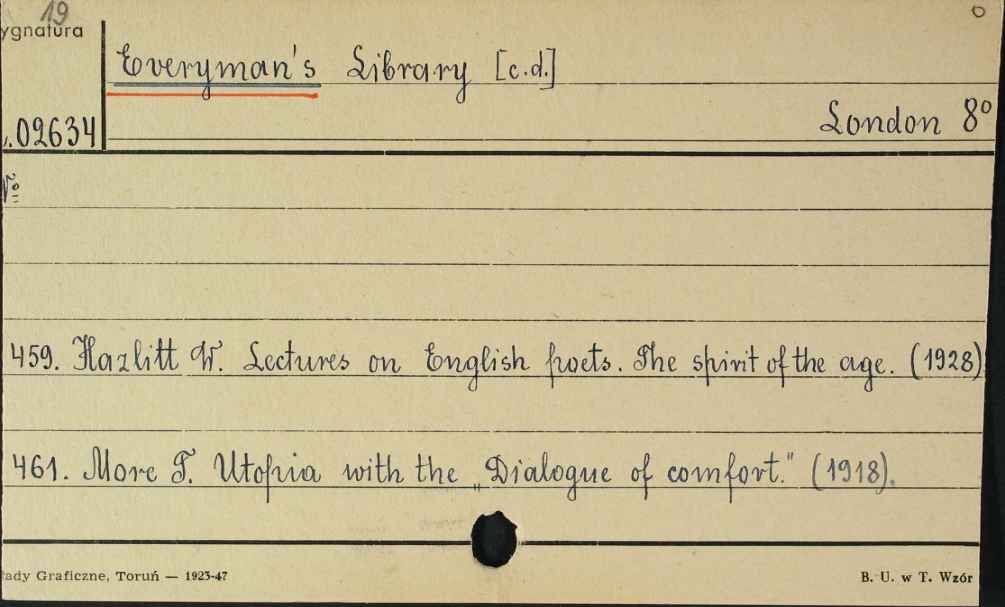 19
ygnatura
Everyman's Library [c.d.]
London 8º
.02634
Nº:
459. Hazlitt W. Lectures on English poets. The spirit of the age. (1928)
461. More T. Utopia with the „Dialogue of comfort." (1918).
łady Graficzne, Toruń — 1923-47
B. U. w T. Wzór